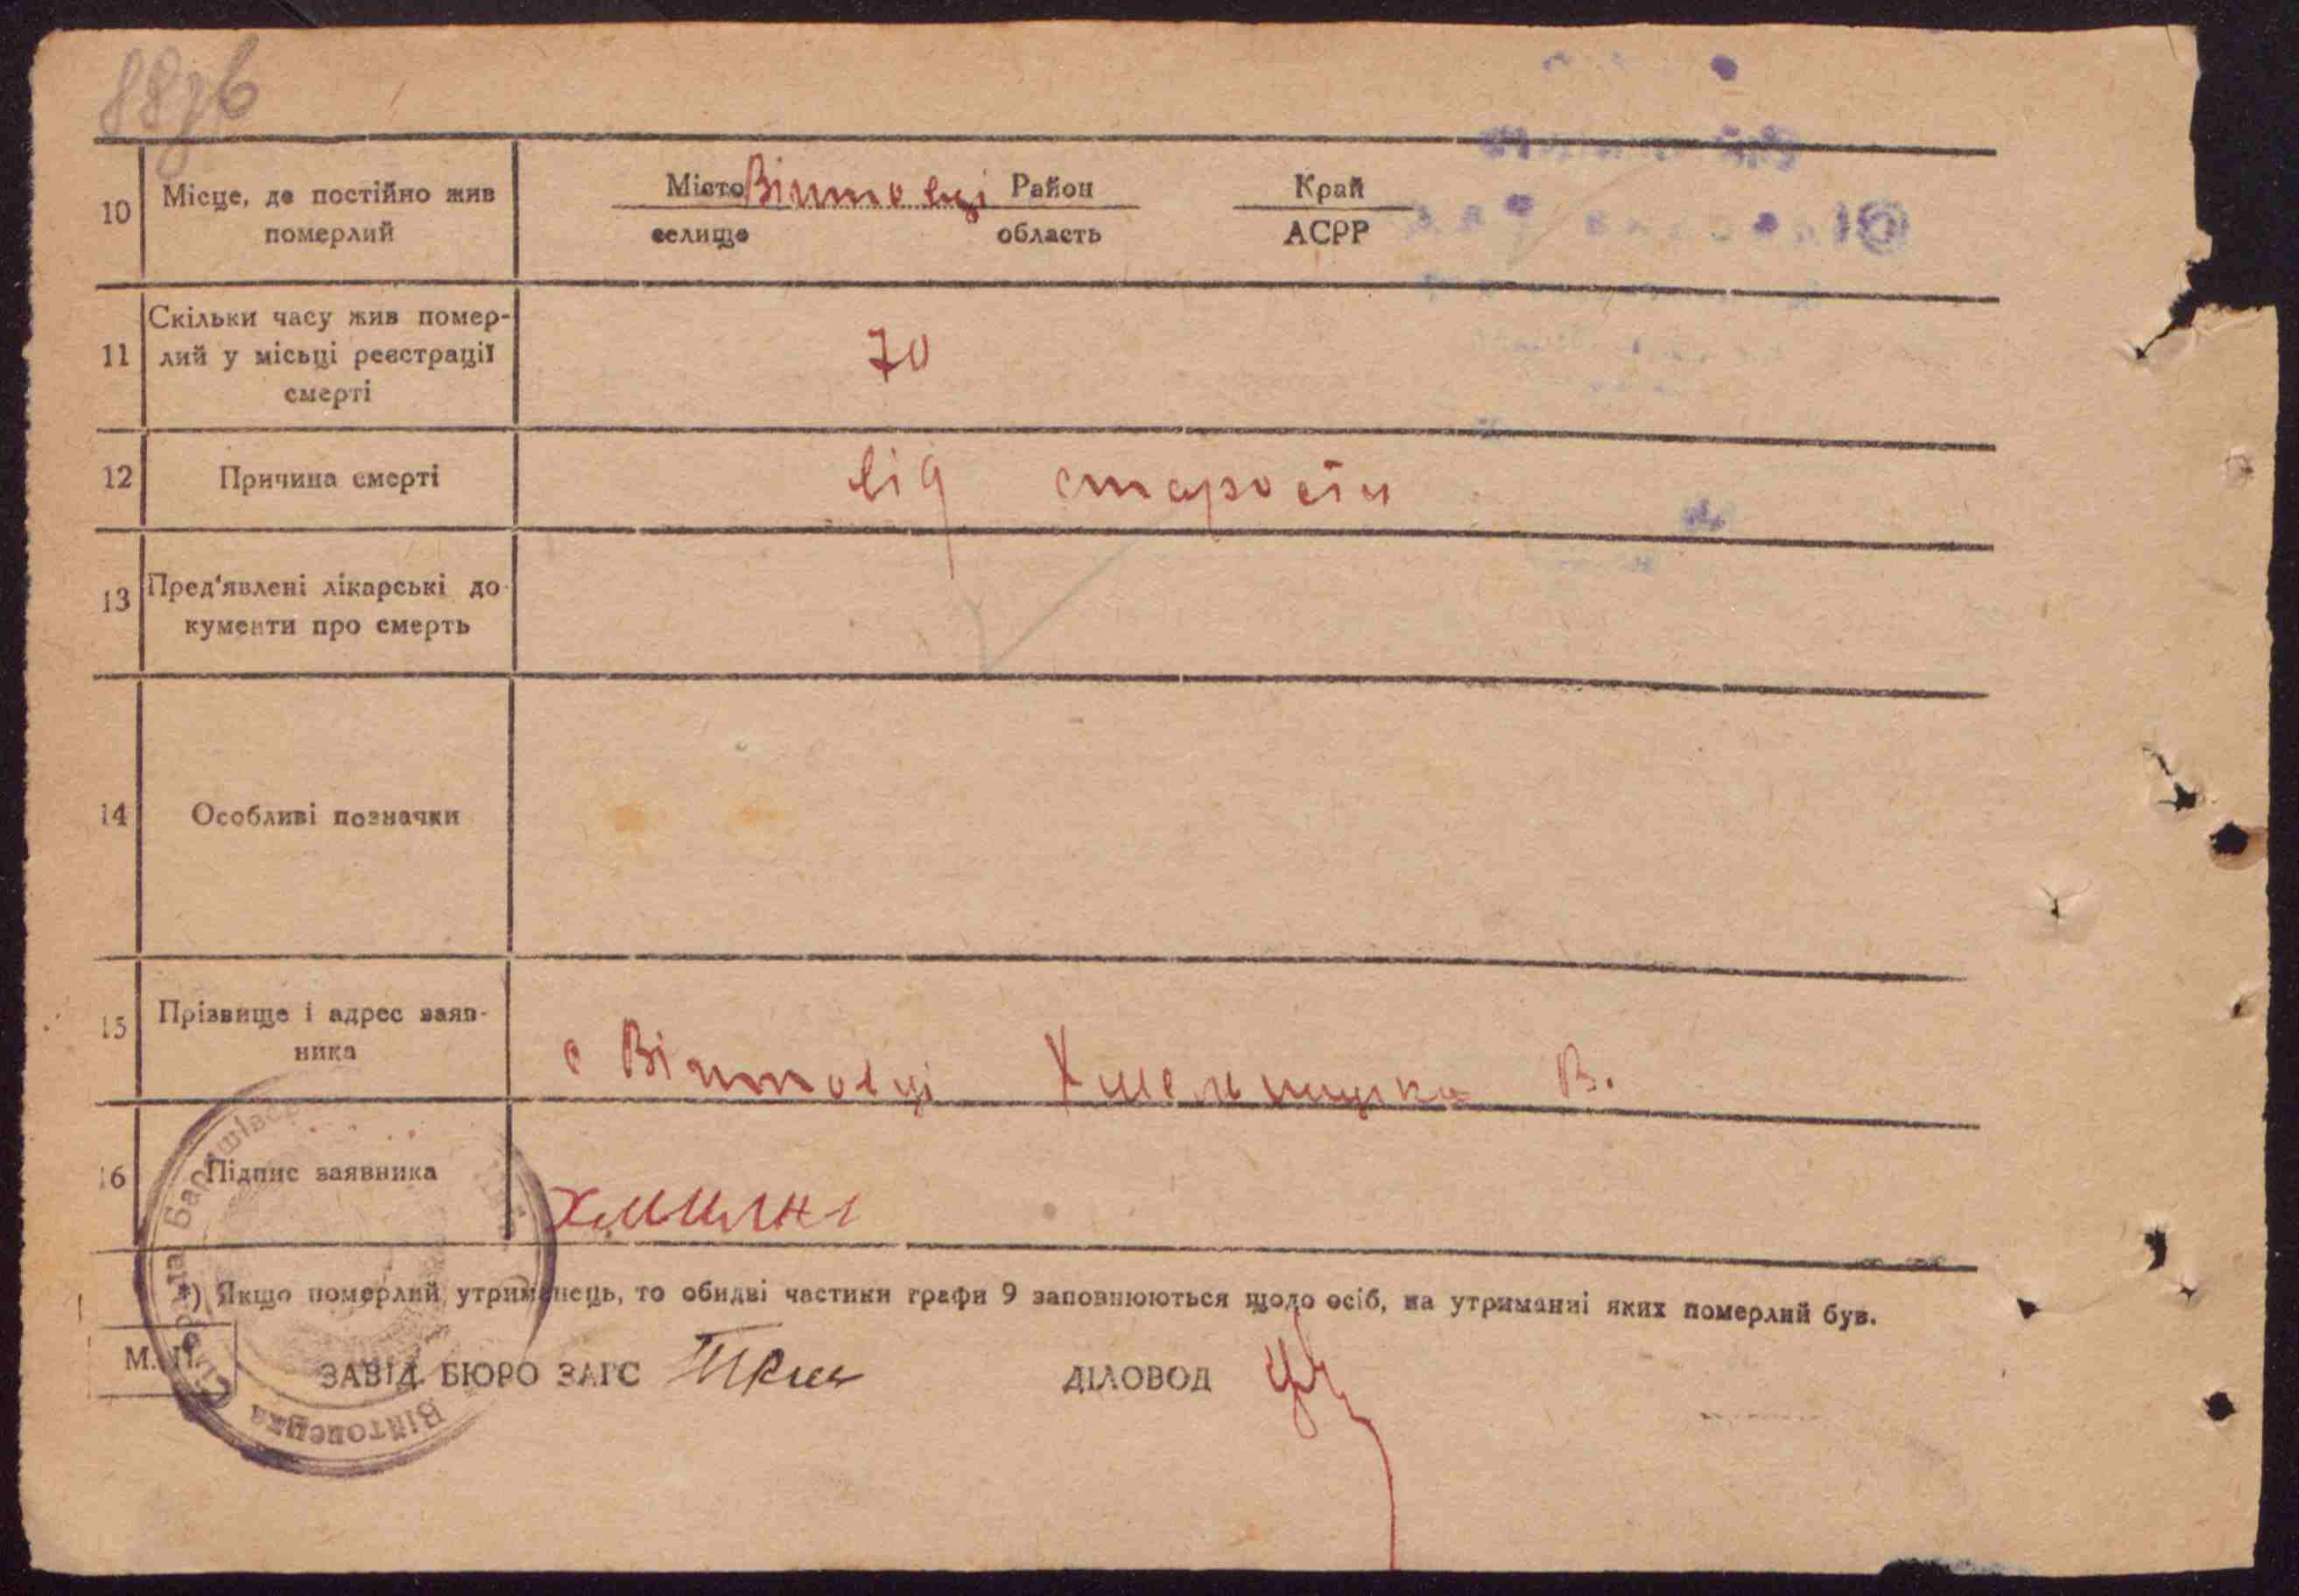 10 Місце, де постійно жив померлий
Місто Війтовці Район Край
селище область АСРР
11 Скільки часу жив помер-
лий у місьці реєстрації
смерті
70
12 Причина смерті від старости
13 Пред'явлені лікарські до-
кументи про смерть
14 Особливі позначки
15 Прізвище і адрес заяв-
ника
с Війтовці Хмельницка В.
16 Підпис заявника
*) Якщо померлий утриманець, то обидві частики графи 9 заповнюються щодо осіб, на утриманні яких померлий був.
М. П.
ЗАВІД. БЮРО ЗАГС ДІЛОВОД
Війтовецька